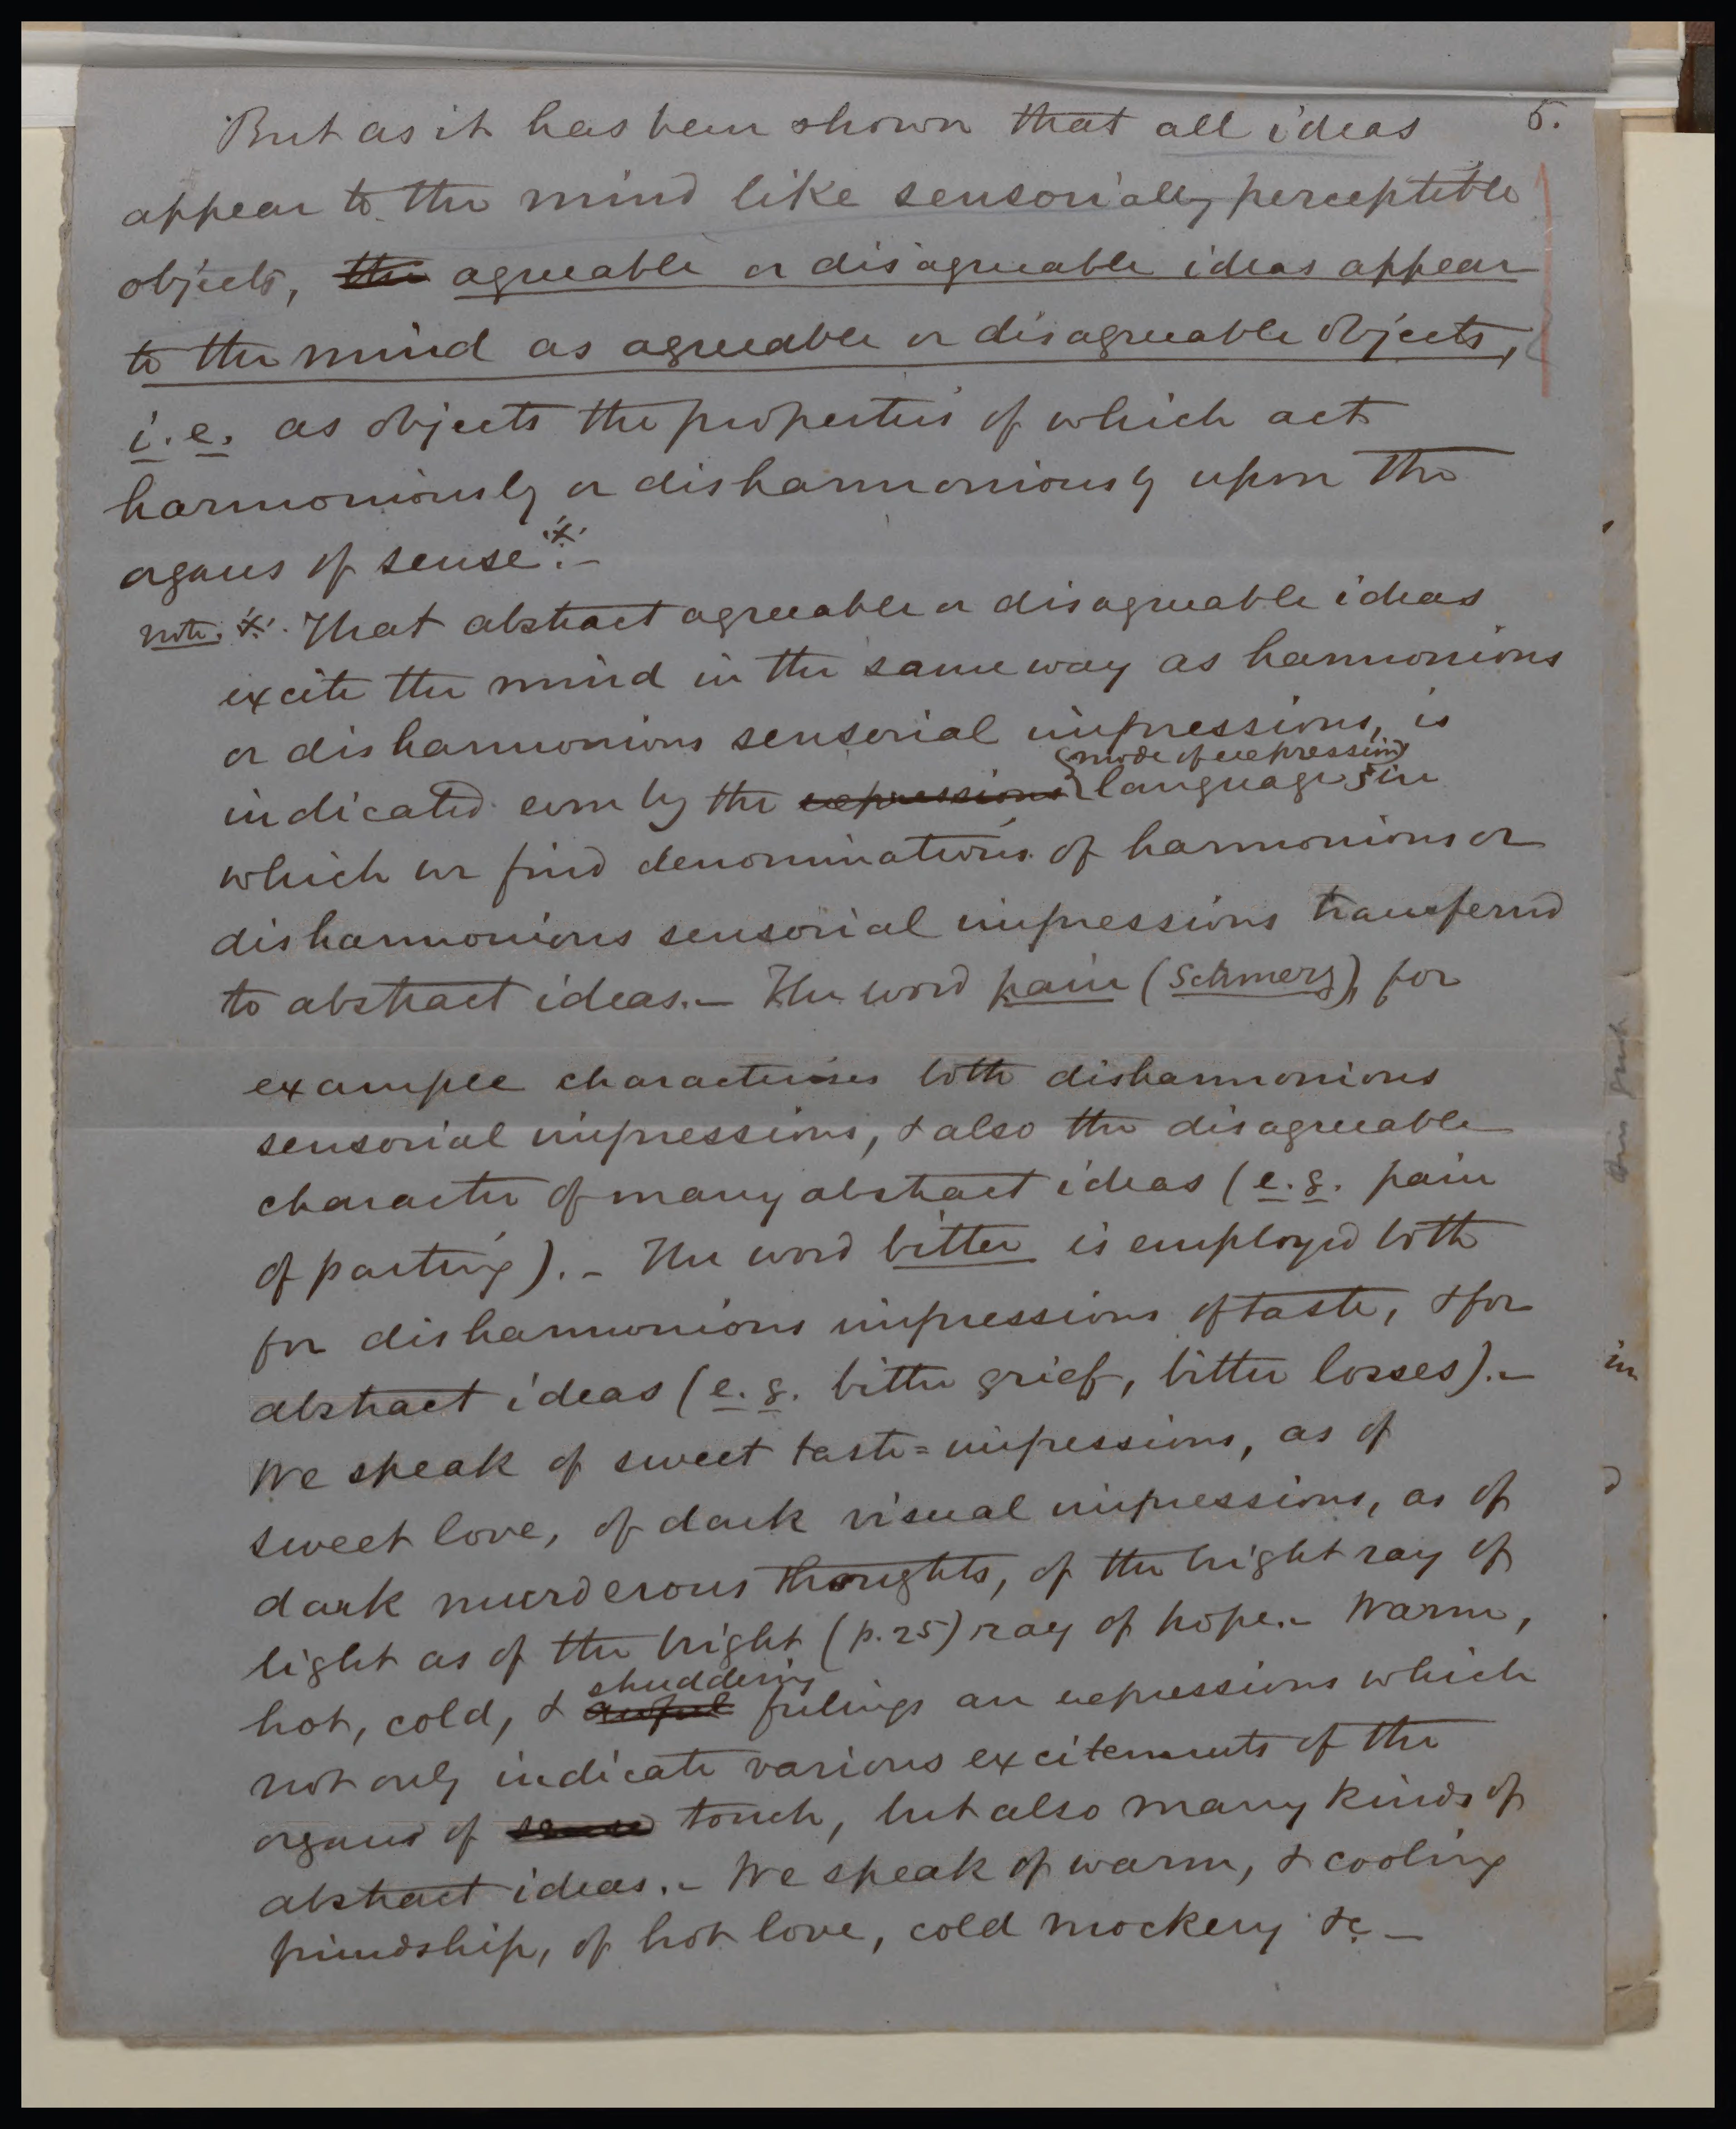 5.
But as it has been shown that all ideas
appear to the mind like sensorially perceptible
objects, the agreeable or disagreeable ideas appear
to the mind as agreeable or disagreeable objects,
i.e. as objects the properties of which act
harmoniously or disharmoniously upon the
organs of sense.※–
note. ※. That abstract agreeable or disagreeable ideas
excite the mind in the same way as harmonious
or disharmonious sensorial impressions, is
mode of expression
indicated even by the expressions language, in
which we find denominations of harmonious or
disharmonious sensorial impressions transferred
to abstract ideas.– The word pain (Schmerz), for
example characterises both disharmonious
sensorial impressions, & also the disagreeable
character of many abstract ideas (e.g. pain
of parting).– The word bitter is employed both
for disharmonious impressions of taste, & for
abstract ideas (e.g. bitter grief, bitter losses).–
We speak of sweet taste=impressions, as of
sweet love, of dark visual impressions, as of
dark murderous thoughts, of the bright ray of
light as of the bright (p.25) ray of hope.– Warm,
shuddering
hot, cold, & awful feelings are expressions which
not only indicate various excitements of the
organs of sense touch, but also many kinds of
abstract ideas.– We speak of warm, & cooling
friendship, of hot love, cold mockery &c –
in